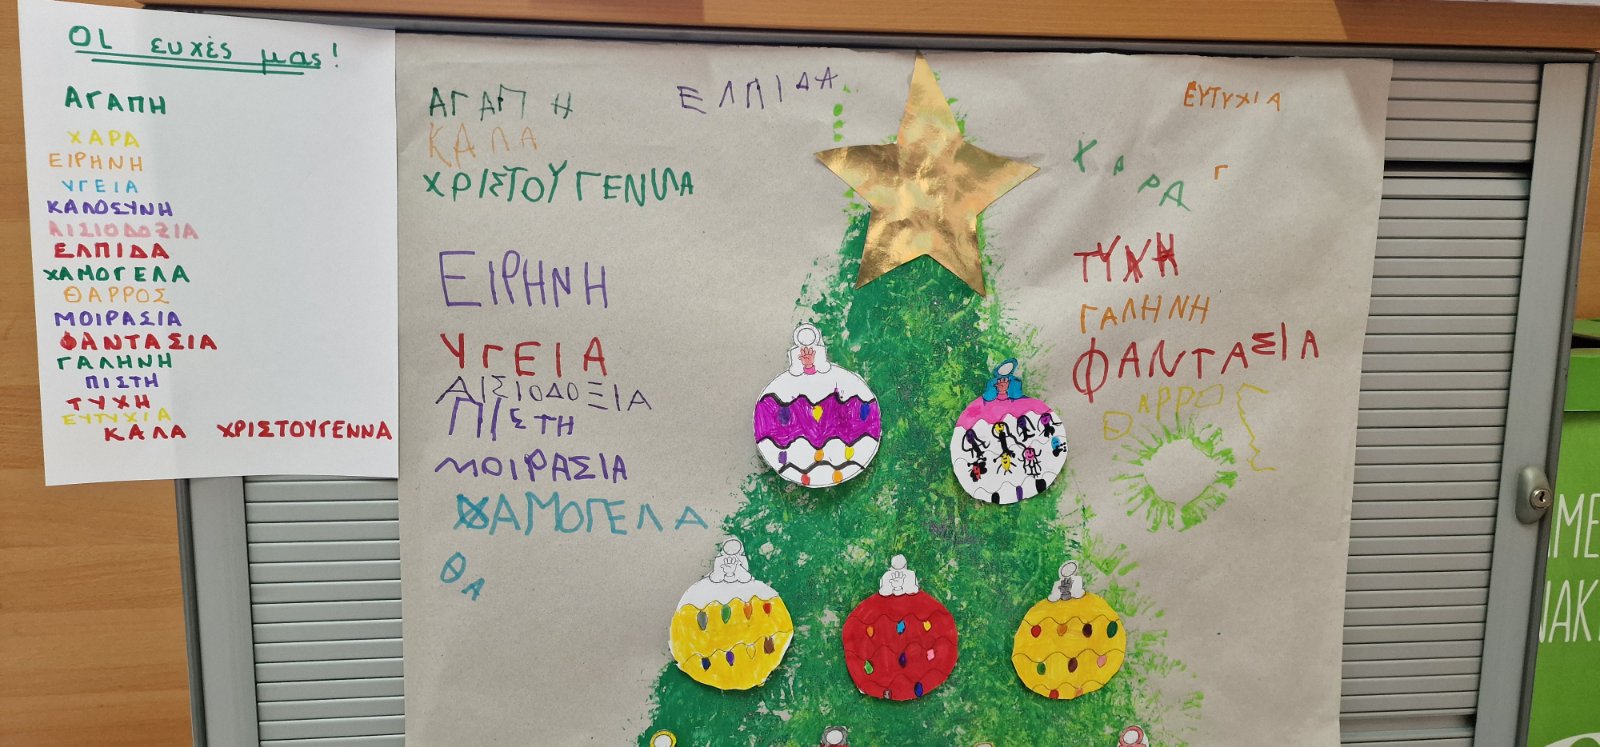 Οι ευχές μας!
ΑΓΑΠΗ
ΧΑΡΑ
ΕΙΡΗΝΗ
ΥΓΕΙΑ
ΚΑΛΟΣΥΝΗ
ΑΙΣΙΟΔΟΞΙΑ
ΕΛΠΙΔΑ
ΧΑΜΟΓΕΛΑ
ΘΑΡΡΟΣ
ΜΟΙΡΑΣΙΑ
ΦΑΝΤΑΣΙΑ
ΓΑΛΗΝΗ
ΠΙΣΤΗ
ΤΥΧΗ
ΕΥΤΥΧΙΑ
ΚΑΛΑ ΧΡΙΣΤΟΥΓΕΝΝΑ
ΑΓΑΠΗ
ΚΑΛΑ
ΧΡΙΣΤΟΥΓΕΝΝΑ
ΕΙΡΗΝΗ
ΥΓΕΙΑ
ΑΙΣΙΟΔΟΞΙΑ
ΠΙΣΤΗ
ΜΟΙΡΑΣΙΑ
ΧΑΜΟΓΕΛΑ
ΘΑ
ΕΛΠΙΔΑ
ΕΥΤΥΧΙΑ
ΧΑΡΑ
Γ
ΤΥΧΗ
ΓΑΛΗΝΗ
ΦΑΝΤΑΣΙΑ
ΘΑΡΡΟΣ